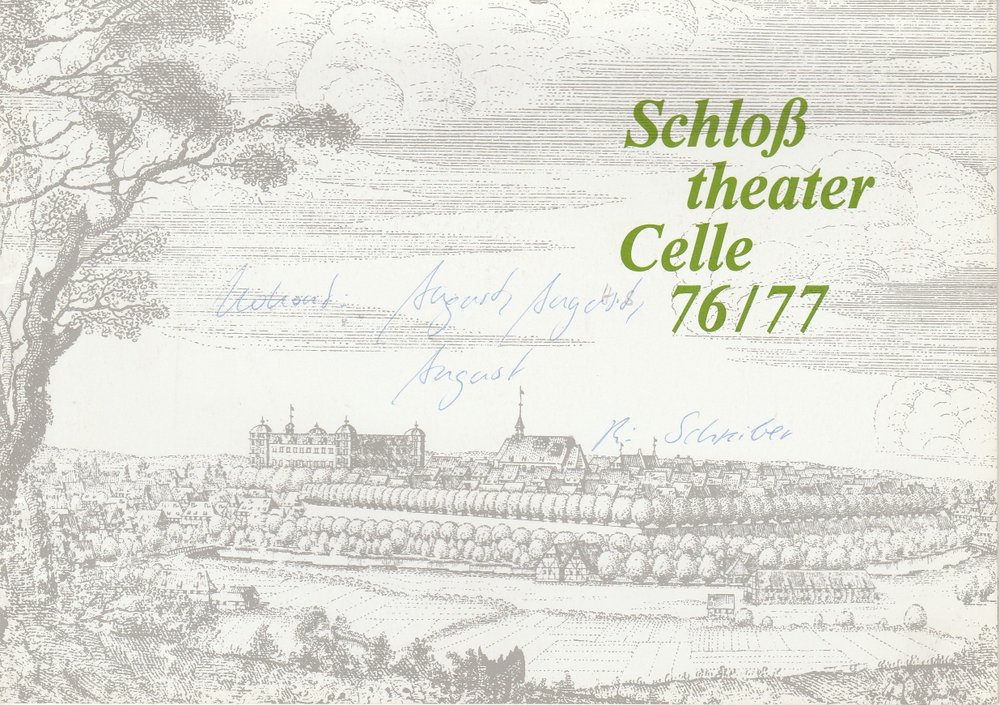 Schloß
theater
Celle
76/77
Kohout. August, August,
August
Ri- Schreiber